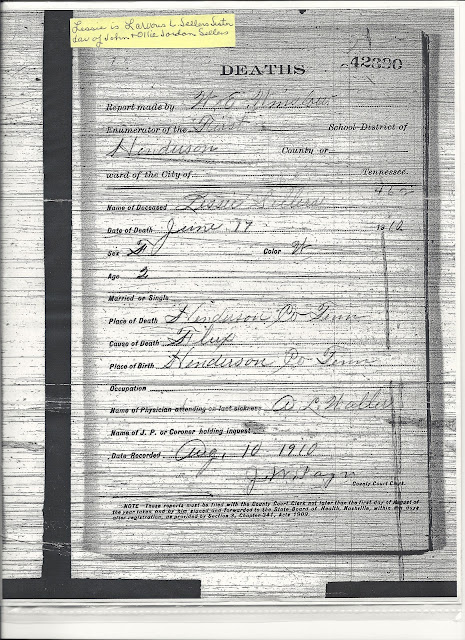 Lessie is Larvous L. Sellers Sister
dau of John + Ollie Jordan Sellers
DEATHS
42390
Report made by W
Enumerator of the First School District of
Henderson County or
ward of the City of Tennessee.
Name of Deceased Lessie Sellers
Date of Death June 1910.
Sex F Color W
Age 2
Married or Single
Place of Death Henderson Co Tenn
Cause of Death Flux
Place of Birth Henderson Co Tenn
Occupation
Name of Physician attending on last sickness L. Waller
Name of J. P. or Coroner holding inquest
Date Recorded Aug, 10 1910
County Court Clerk.
NOTE—These reports must be filed with the County Court Clerk not later than the first day of August of
the year taken and by him placed and forwarded to the State Board of Health, Nashville, within days
after registration, as provided by Section Chapter 341, Acts 1909.